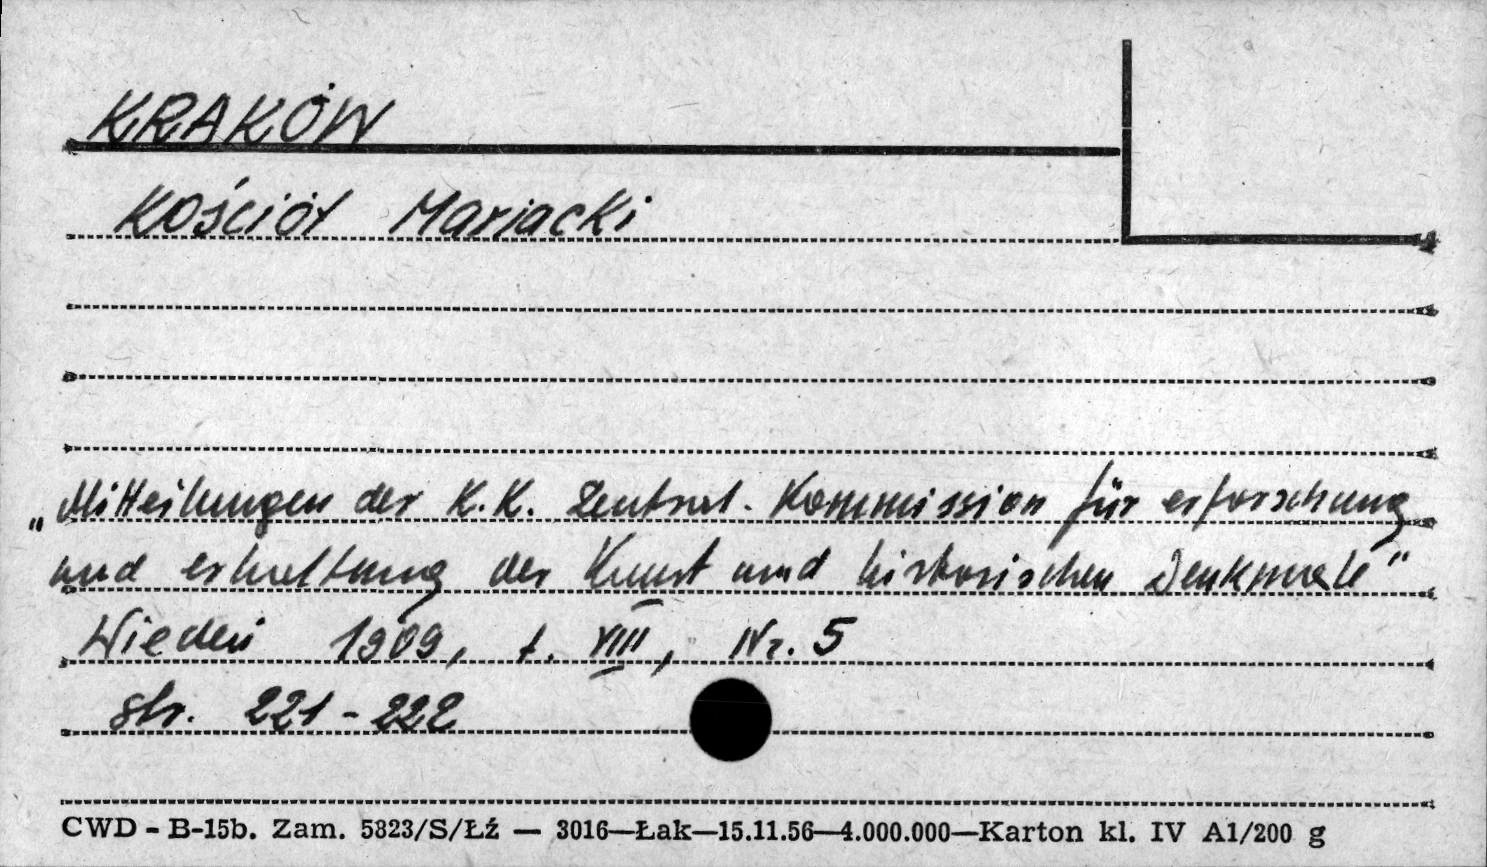 KRAKÓW
Kościół Mariacki
„Mitteilungen der K.K. Zentral. Kommission für erforschung
und erhaltung der Kunst und historischen Denkmale"
Wiedeń 1909, t. VIII, Nr. 5
str. 221-222
CWD - B-15b. Zam. 5823/S/Łź — 3016—Łak—15.11.56—4.000.000—Karton kl. IV A1/200 g